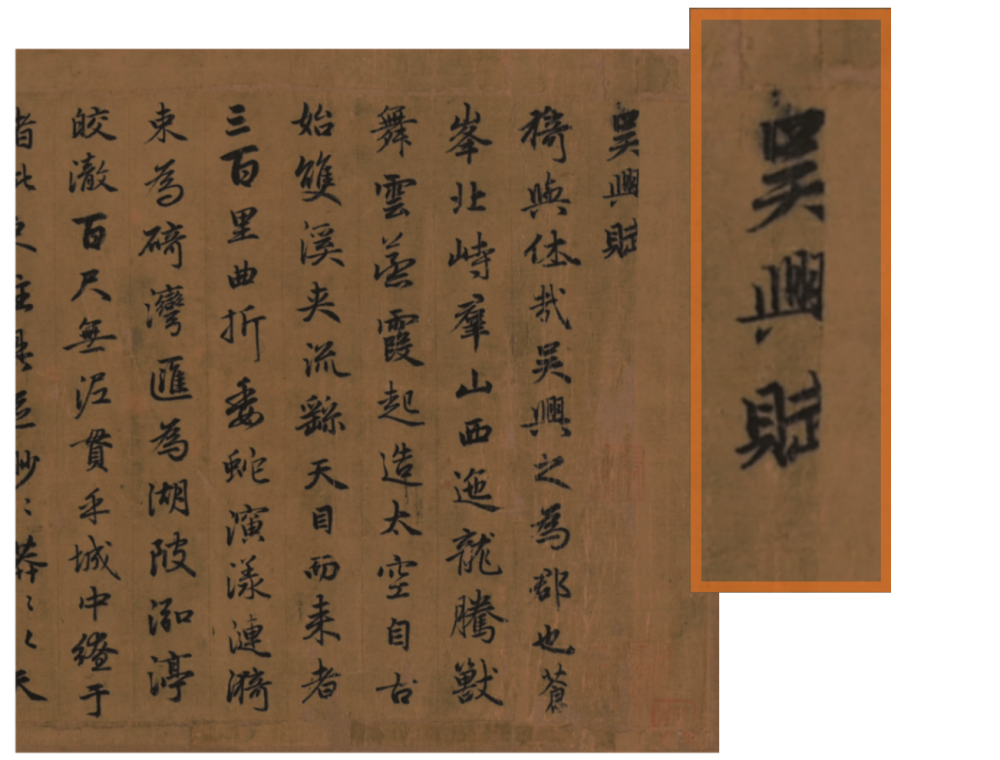 吳興賦
猗與休哉吳興之為郡也蒼
峯北峙羣山西迤龍騰獸
舞雲蒸霞起造太空自古
始雙溪夾流繇天目而来者
三百里曲折委蛇演漾漣漪
束為碕灣匯為湖陂泓渟
皎澈百尺無泥貫乎城中繚于
吳興賦